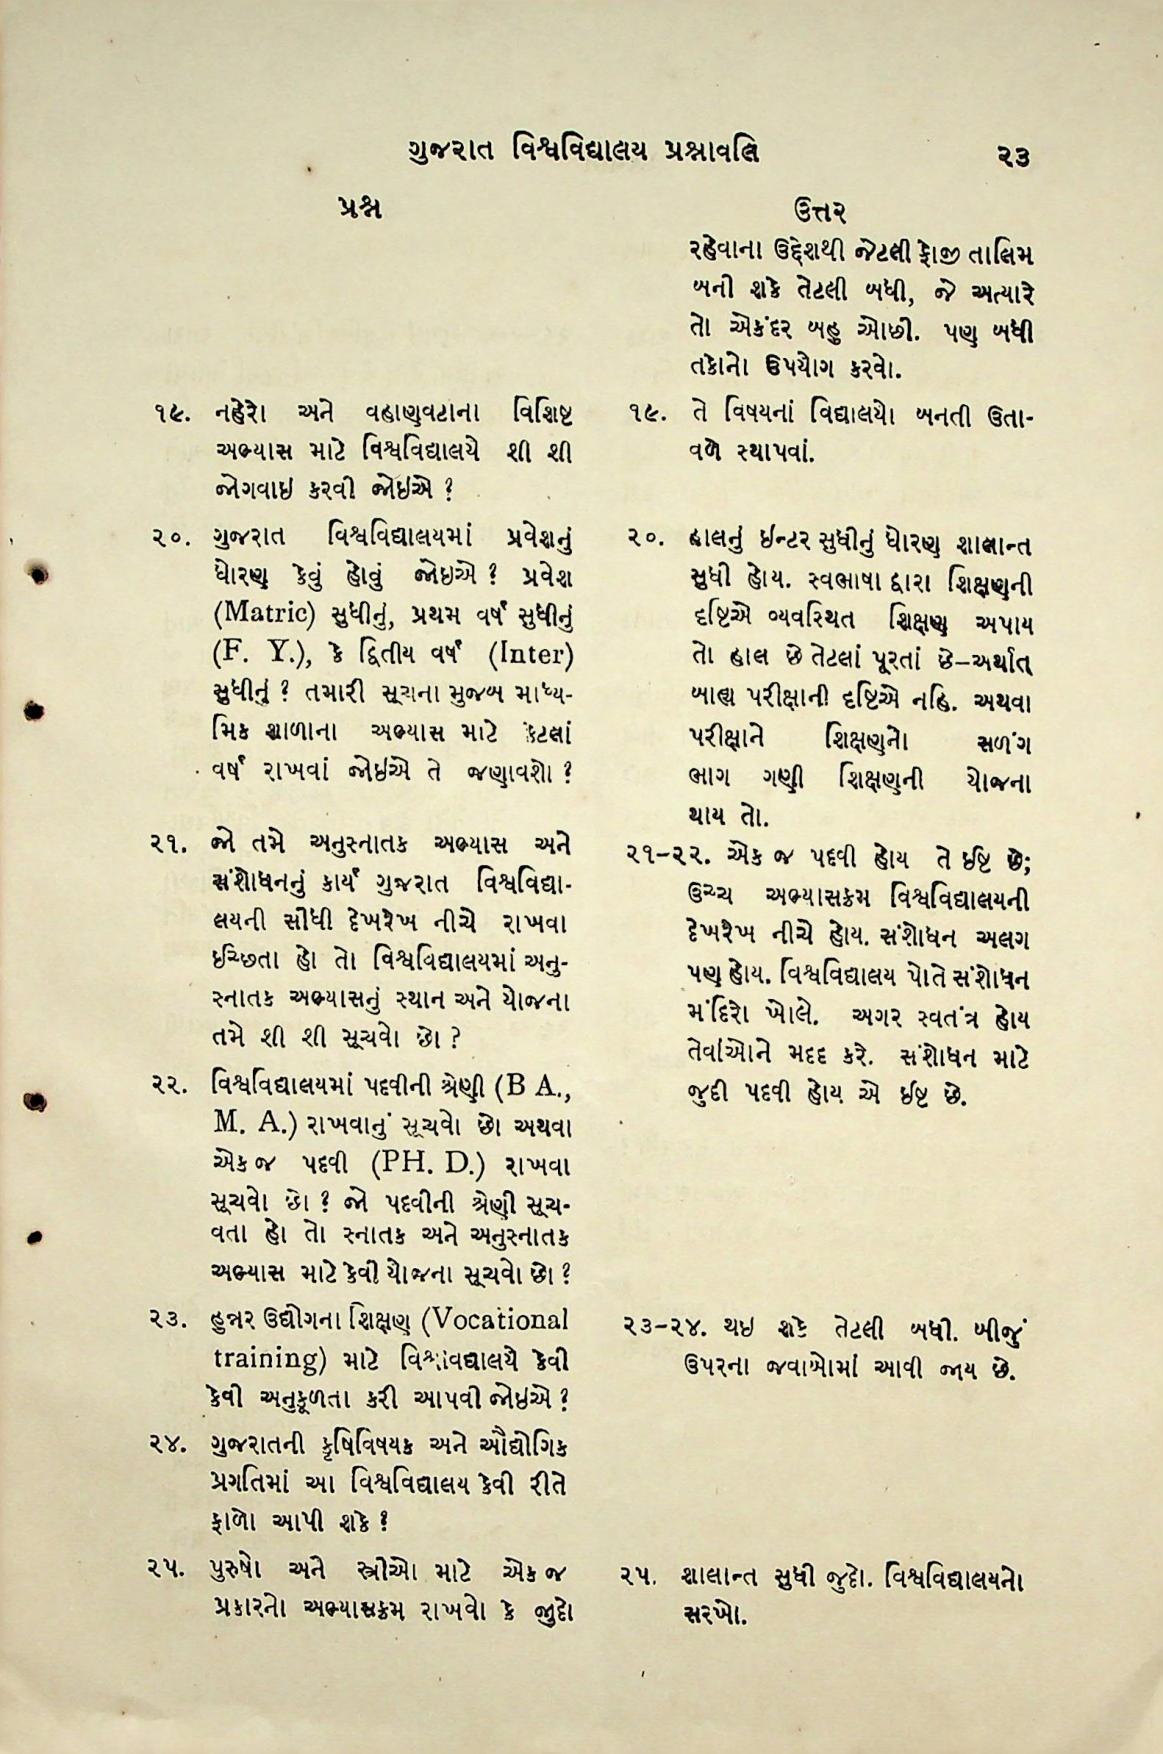 ગુજરાત વિશ્વવિદ્યાલય પ્રશ્નાવલિ
૨૩
પ્રશ્ન
૧૯. નહેરો અને વહાણવટાના વિશિષ્ટ
અભ્યાસ માટે વિશ્વવિદ્યાલયે શી શી
જોગવાઇ કરવી જોઇએ ?
૨૦. ગુજરાત વિશ્વવિદ્યાલયમાં પ્રવેશનું
ધોરણ કેવું હોવું જોઇએ ? પ્રવેશ
(Matric) સુધીનું, પ્રથમ વર્ષ સુધીનું
(F. Y.), કે દ્વિતીય વર્ષ (Inter)
સુધીનું ? તમારી સૂચના મુજબ માધ્ય-
મિક શાળાના અભ્યાસ માટે કેટલાં
વર્ષ રાખવાં જોઇએ તે જણાવશો ?
૨૧. જો તમે અનુસ્નાતક અભ્યાસ અને
સંશોધનનું કાર્ય ગુજરાત વિશ્વવિદ્યા-
લયની સીધી દેખરેખ નીચે રાખવા
ઇચ્છતા હો તો વિશ્વવિદ્યાલયમાં અનુ-
સ્નાતક અભ્યાસનું સ્થાન અને યોજના
તમે શી શી સૂચવો છો ?
૨૨. વિશ્વવિદ્યાલયમાં પદવીની શ્રેણી (B A.,
M. A.) રાખવાનું સૂચવો છો અથવા
એક જ પદવી (PH. D.) રાખવા
સૂચવો છો ? જો પદવીની શ્રેણી સૂચ-
વતા હો તો સ્નાતક અને અનુસ્નાતક
અભ્યાસ માટે કેવી યોજના સૂચવો છો ?
૨૩. હુન્નર ઉદ્યોગના શિક્ષણ (Vocational
training) માટે વિશ્વવિદ્યાલયે કેવી
કેવી અનુકૂળતા કરી આપવી જોઇએ ?
૨૪. ગુજરાતની કૃષિવિષયક અને ઔદ્યોગિક
પ્રગતિમાં આ વિશ્વવિદ્યાલય કેવી રીતે
ફાળો આપી શકે ?
૨૫. પુરુષો અને સ્ત્રીઓ માટે એક જ
પ્રકારનો અભ્યાસક્રમ રાખવો કે જુદો
ઉત્તર
રહેવાના ઉદ્દેશથી જેટલી ફોજી તાલિમ
બની શકે તેટલી બધી, જે અત્યારે
તો એકંદર બહુ ઓછી. પણ બધી
તકોનો ઉપયોગ કરવો.
૧૯. તે વિષયનાં વિદ્યાલયો બનતી ઉતા-
વળે સ્થાપવાં.
૨૦. હાલનું ઇન્ટર સુધીનું ધોરણ શાલાન્ત
સુધી હોય. સ્વભાષા દ્વારા શિક્ષણની
દૃષ્ટિએ વ્યવસ્થિત શિક્ષણ અપાય
તો હાલ છે તેટલાં પૂરતાં છે–અર્થાત્
બાહ્ય પરીક્ષાની દૃષ્ટિએ નહિ. અથવા
પરીક્ષાને શિક્ષણનો સળંગ
ભાગ ગણી શિક્ષણની યોજના
થાય તો.
૨૧–૨૨. એક જ પદવી હોય તે ઈષ્ટ છે;
ઉચ્ચ અભ્યાસક્રમ વિશ્વવિદ્યાલયની
દેખરેખ નીચે હોય. સંશોધન અલગ
પણ હોય. વિશ્વવિદ્યાલય પોતે સંશોધન
મંદિરો ખોલે. અગર સ્વતંત્ર હોય
તેવાઓને મદદ કરે. સંશોધન માટે
જુદી પદવી હોય એ ઈષ્ટ છે.
૨૩–૨૪. થઇ શકે તેટલી બધી. બીજું
ઉપરના જવાબોમાં આવી જાય છે.
૨૫. શાલાન્ત સુધી જુદો. વિશ્વવિદ્યાલયનો
સરખો.